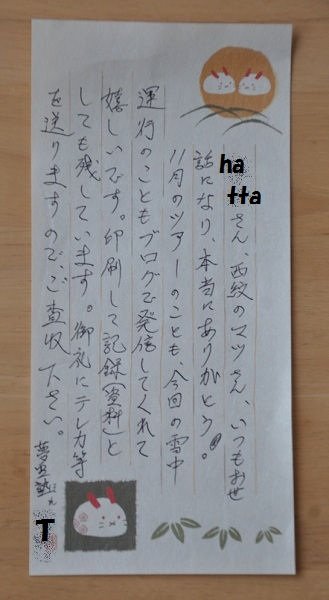 ha
tta さん、西紋のマツさん、いつもお世
話になり、本当にありがとう。
11月のツアーのことも、今回の雪中
運行のこともブログで発信してくれて
嬉しいです。印刷して記録(資料)と
しても残しています。御礼にテレカ等
を送りますので、ご査収下さい。
T